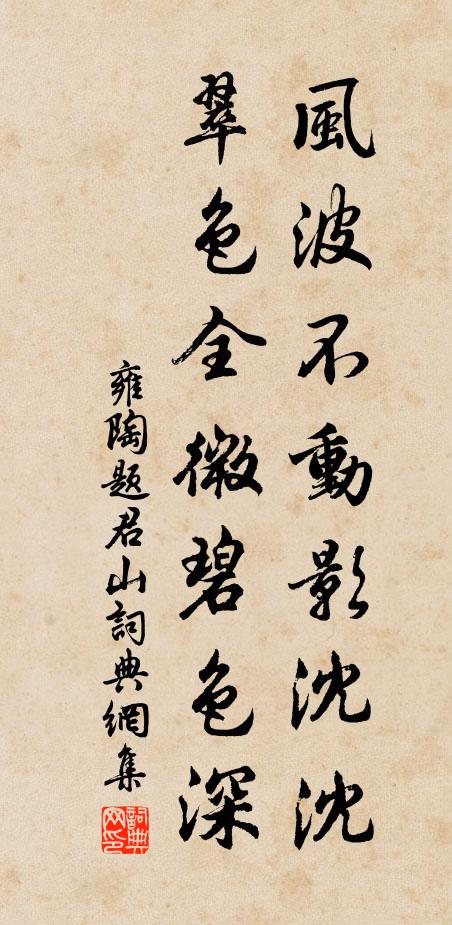 風波不動影沈沈
翠色全微碧色深
雍陶題君山詞典網集
詞典网印